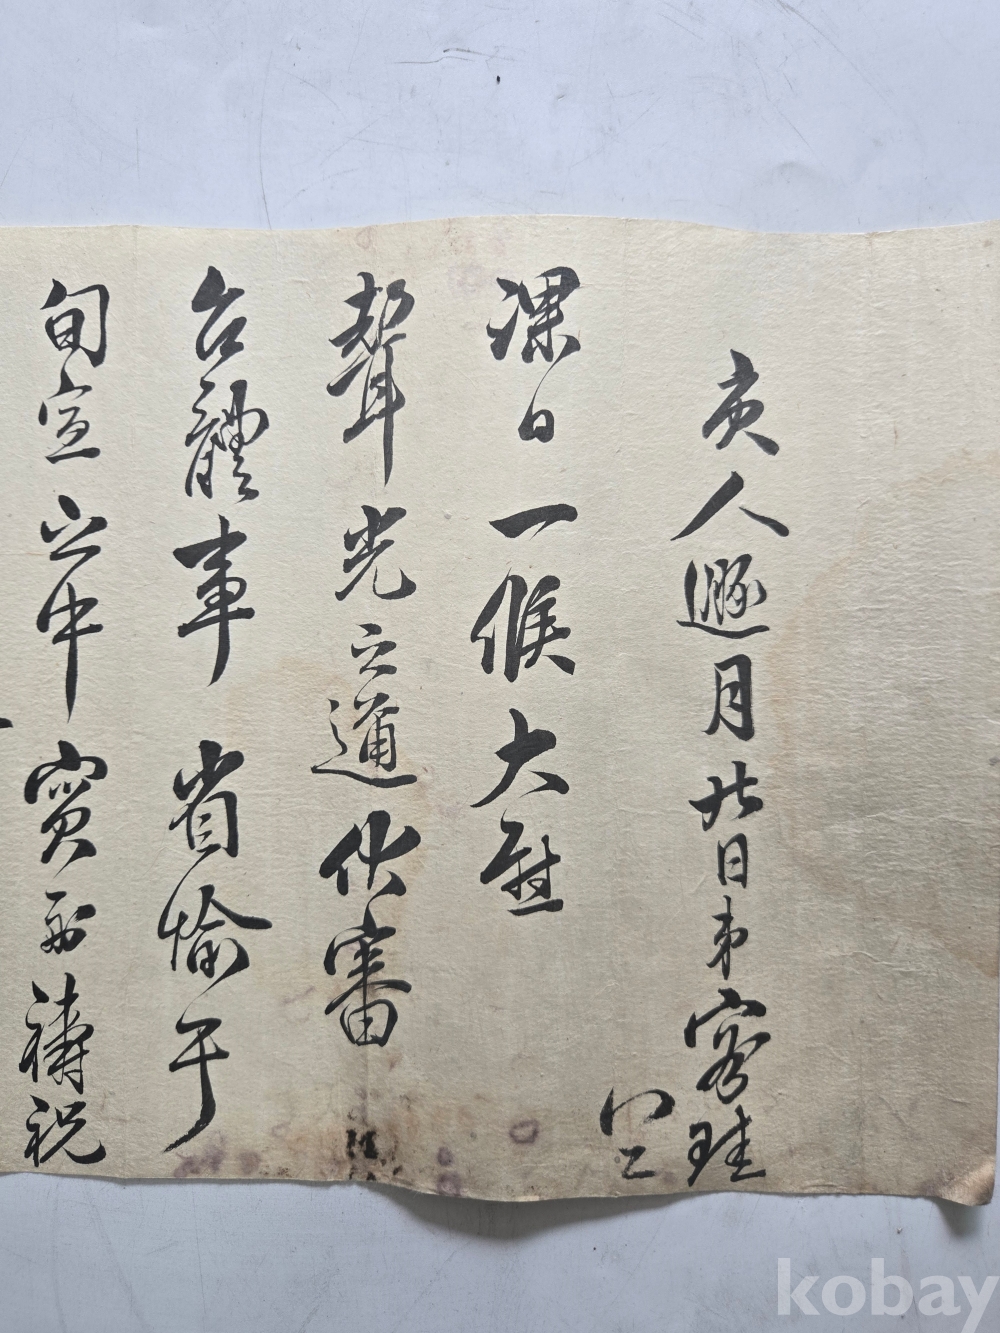 亥人遯月廿日弟容珪
課日一候大慰
聲光之道伏審
台體事省愉于
旬宣之中實為禱祝
kobay